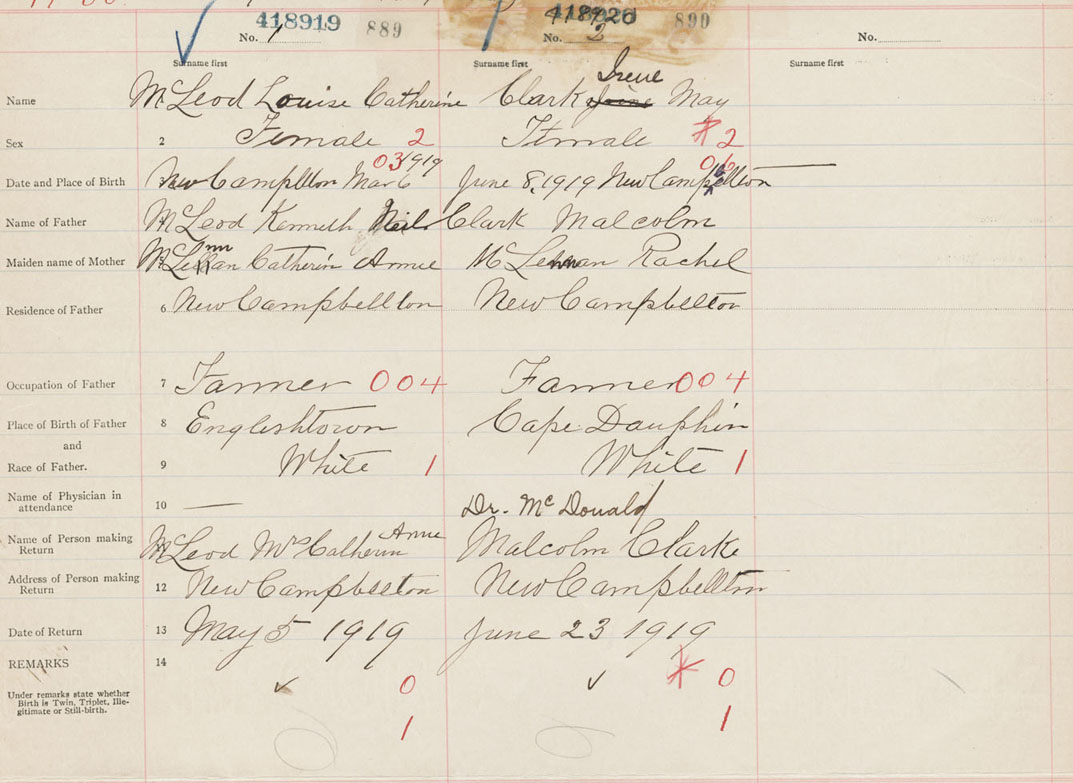 418919 889 418920 890
No. 1 No. 2 No.
Surname first Surname first Surname first
Irene
Name McLeod Louise Catherine Clark May
Sex 2 Female 2 Female 2
03 1919 06
Date and Place of Birth New Camplllton Mar 6 June 8, 1919 New Campbellton
Name of Father McLeod Kenneth Neil Clark Malcolm
Maiden name of Mother McLennan Catherin Annie McLennan Rachel
Residence of Father 6 New Campbellton New Campbelton
Occupation of Father 7 Farmer 004 Farmer 004
Place of Birth of Father 8 Englishtown Cape Dauphin
and
Race of Father. 9 White 1 White 1
Name of Physician in
attendance 10 — Dr. McDonald
Annie
Name of Person making
Return McLeod Mrs Catherin Malcolm Clarke
Address of Person making
Return 12 New Campbellton New Campbellton
Date of Return 13 May 5 1919 June 23 1919
REMARKS 14
✓ 0 ✓ 0
Under remarks state whether
Birth is Twin, Triplet, Ille-
gitimate or Still-birth.
1 1